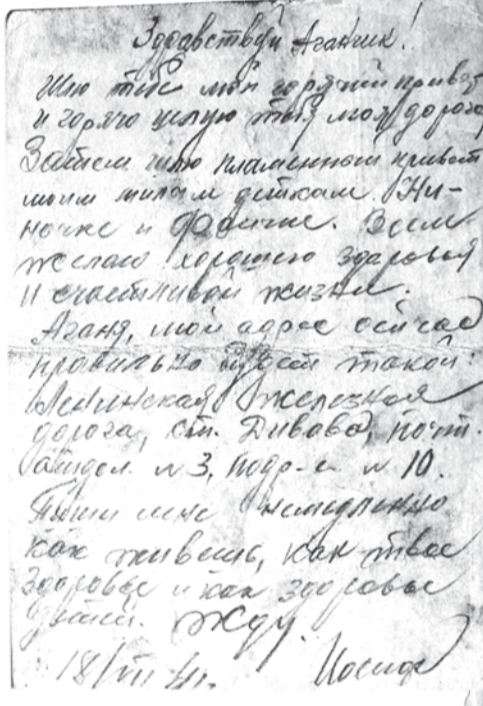 Здравствуй Аганчик!
Шлю тебе мой горячий привет
и горячо целую тебя моя дорогая
Затем шлю пламенный привет
моим милым деткам Ни-
ночке и Фаичке. Всем
желаю хорошего здоровья
и счастливой жизни.
Аганя, мой адрес сейчас
правильно будет такой:
Ленинская железная
дорога, ст. Дивово, почт.
отдел. №3, подр-е №10.
Пиши мне немедленно
как живешь, как твое
здоровье и как здоровье
детей. Жду.
18/VII 41г. Иосиф